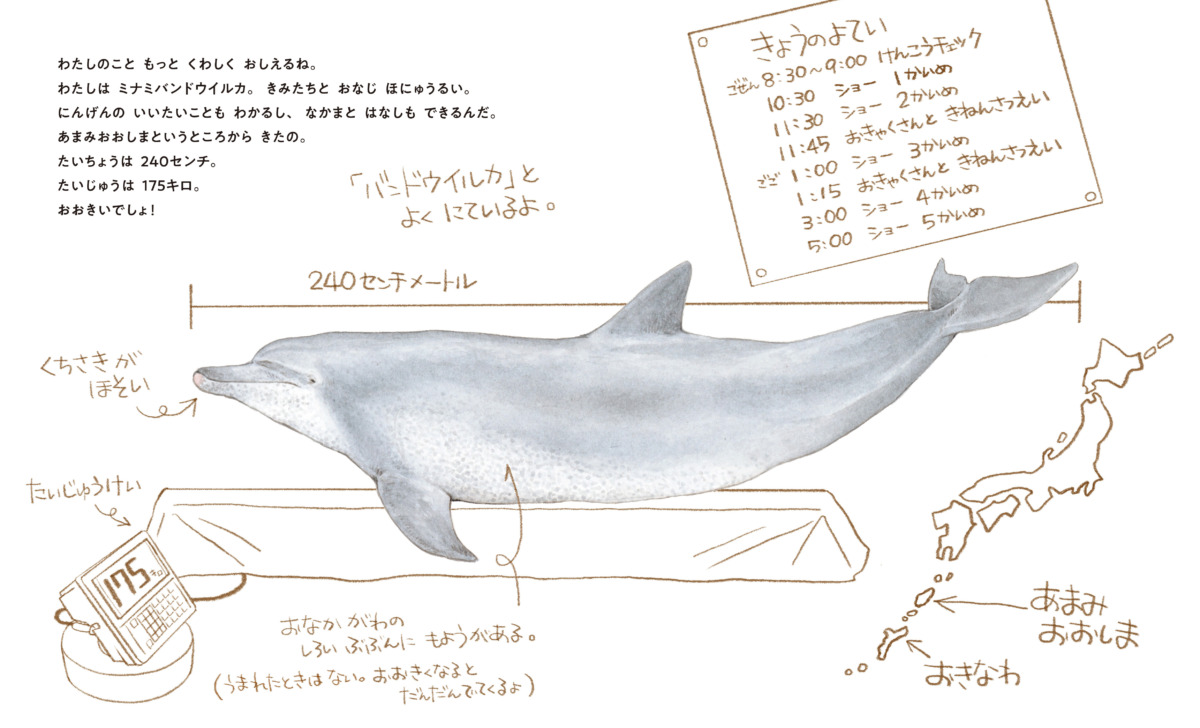 わたしのこと もっと くわしく おしえるね。
わたしは ミナミバンドウイルカ。 きみたちと おなじ ほにゅうるい。
にんげんの いいたいことも わかるし、 なかまと はなしも できるんだ。
あまみおおしまというところから きたの。
たいちょうは 240センチ。
たいじゅうは 175キロ。
おおきいでしょ!
「バンドウイルカ」と
よく にているよ。
きょうのよてい
ごぜん 8:30~9:00 けんこうチェック
10:30 ショー 1かいめ
11:30 ショー 2かいめ
11:45 おきゃくさんと きねんさつえい
ごご 1:00 ショー 3かいめ
1:15 おきゃくさんと きねんさつえい
3:00 ショー 4かいめ
5:00 ショー 5かいめ
240センチメートル
くちさきが
ほそい
たいじゅうけい
175キロ
おなかがわの
しろい ぶぶんに もようがある。
(うまれたときはない。おおきくなると
だんだんでてくるよ)
あまみ
おおしま
おきなわ